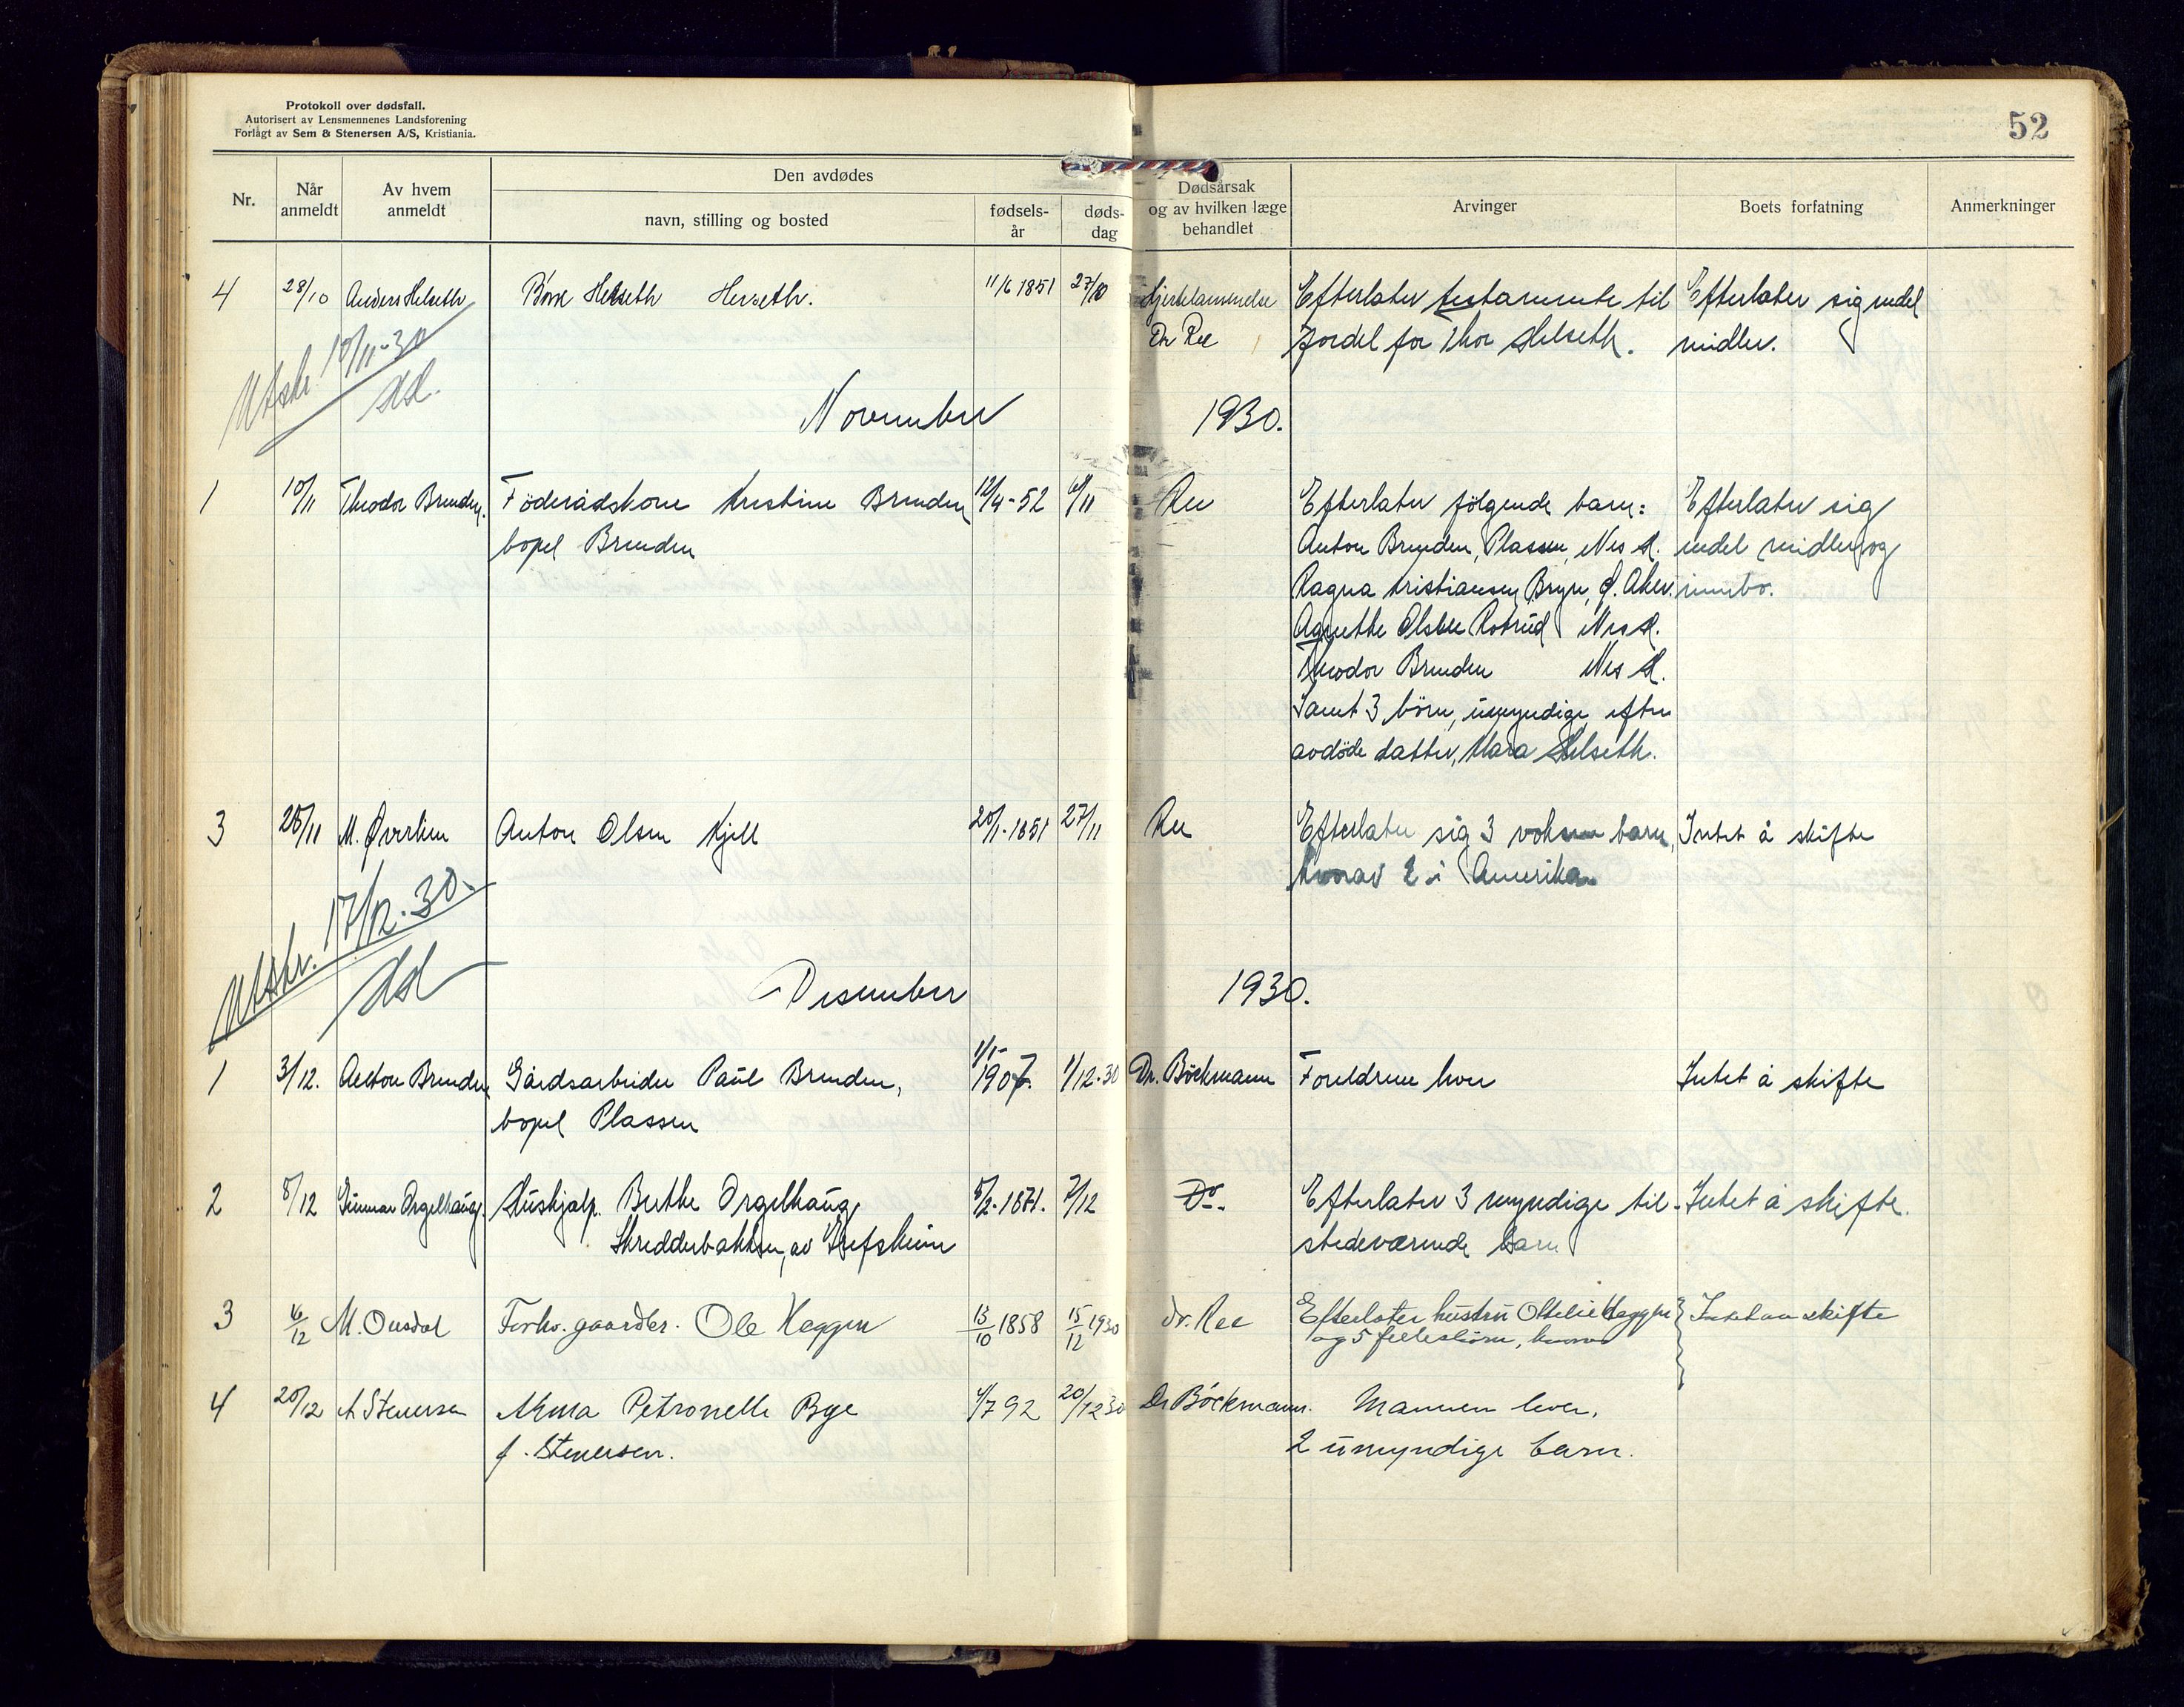 Protokoll over dødsfall.
Autorisert av Lensmennenes Landsforening
Forlagt av Sem & Stenersen A/S, Kristiania.
52
Nr.
Når anmeldt
Av hvem anmeldt
Den avdødes
navn, stilling og bosted
fødsels-år
døds-dag
Dødsårsak og av hvilken læge behandlet
Arvinger
Boets forfatning
Anmerkninger
4 28/10 Anders Helseth Helseth 11/6 1851 27/10 Hjertelammelse Efterlater testamente til Efterlater sig endel
Dr Ree fordel for Thor Helseth. midler.
Utskr. 10/11-30
November 1930.
1 10/11 Theodor Brenden. Föderådskone Kristine Brenden 12/4-52 Ree Efterlater fölgende barn: Efterlater sig
bopel Brenden Anton Brenden, Plassen, Nes H. endel midler og
Ragna Kristiansen, Bryn, Ø. Aker. innbo.
Agnethe Olsen Nes H.
Theodor Brenden Nes H.
Samt 3 börn, umyndige, efter
avdöde datter, Helseth.
3 28/11 M. Øverlien Anton Olsen Kjell 20/1-1851 27/11 Ree Efterlater sig 3 voksne barn, Intet å skifte
hvorav 2 i Amerika
Utskr. 17/12.30.
Desember 1930.
1 3/12. Anton Brenden Gårdsarbeider Paul Brenden, 1/1-1907. 1/12-30 Dr. Böckmann Foreldrene lever Intet å skifte
bopel Plassen
2 8/12 Gunnar Orgelhaug. Hushjelp. Berthe Orgelhaug 5/2-1871. 7/12 Do. Efterlater 3 myndige til- Intet å skifte.
Skredderbakken, av stedeværende barn
3 16/12 M. Ousdal Forhv. gaardbr. Ole Heggen 13/10 1858 15/12 1930 dr. Ree Efterlater hustru Ottelie Heggen Intet aa skifte
og 5 fellesbörn,
4 20/12 A Stenersen Petronelle Bye 4/7 92 20/12 30 Dr Böckmann. Mannen lever.
f. Stenersen. 2 umyndige barn.